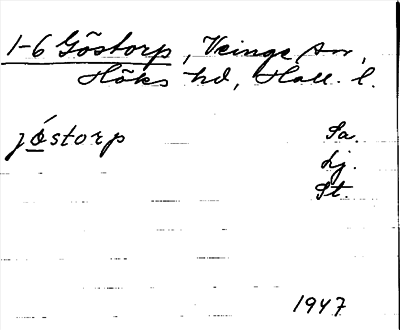 1-6 Göstorp, Veinge sn,
Höks hd, Hall. l.
jóstorp Sa.
Lj.
St.
1947